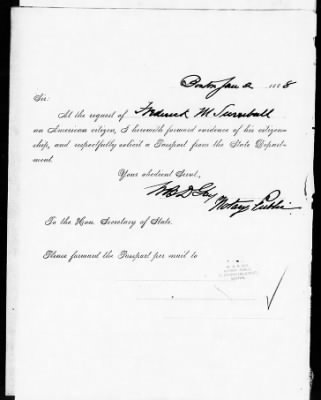 Boston Jan 2 1888
Sir:
At the request of Frederick M. Turnbull
an American citizen, I herewith forward evidence of his citizen-
ship, and respectfully solicit a Passport from the State Depart-
ment.
Your obedient Servt,
Notary Public
To the Hon. Secretary of State.
Please forward the Passport per mail to